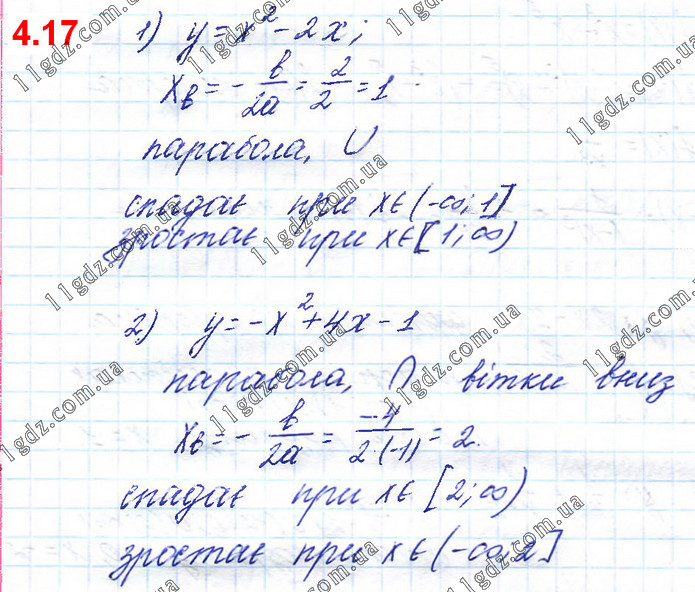 4.17
1) y=x²-2x;
xв = - в/2a = 2/2 = 1
парабола, ∪
спадає при x∈(-∞;1]
зростає при x∈[1;∞)
2) y=-x²+4x-1
парабола, ∩ вітки вниз
xв = - в/2a = -4/2·(-1) = 2.
спадає при x∈[2;∞)
зростає при x∈(-∞;2]
11gdz.com.ua
11gdz.com.ua
11gdz.com.ua
11gdz.com.ua
11gdz.com.ua
11gdz.com.ua
11gdz.com.ua
11gdz.com.ua
11gdz.com.ua